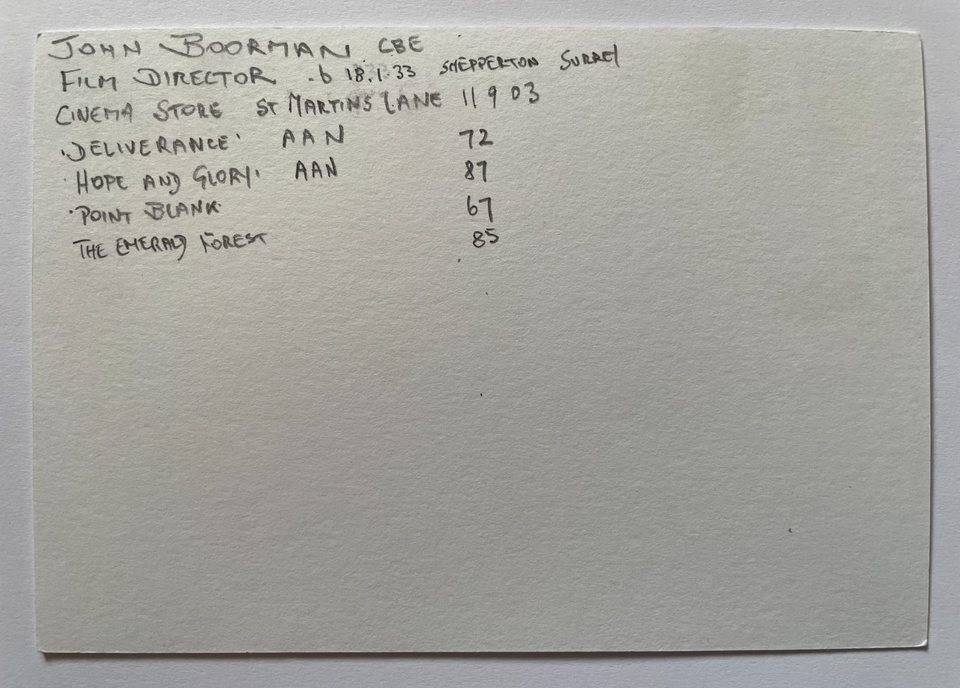 JOHN BOORMAN CBE
FILM DIRECTOR .b 18.1.33 SHEPPERTON SURREY
CINEMA STORE ST MARTINS LANE 11 9 03
'DELIVERANCE' AAN 72
'HOPE AND GLORY' AAN 87
'POINT BLANK' 67
THE EMERALD FOREST 85